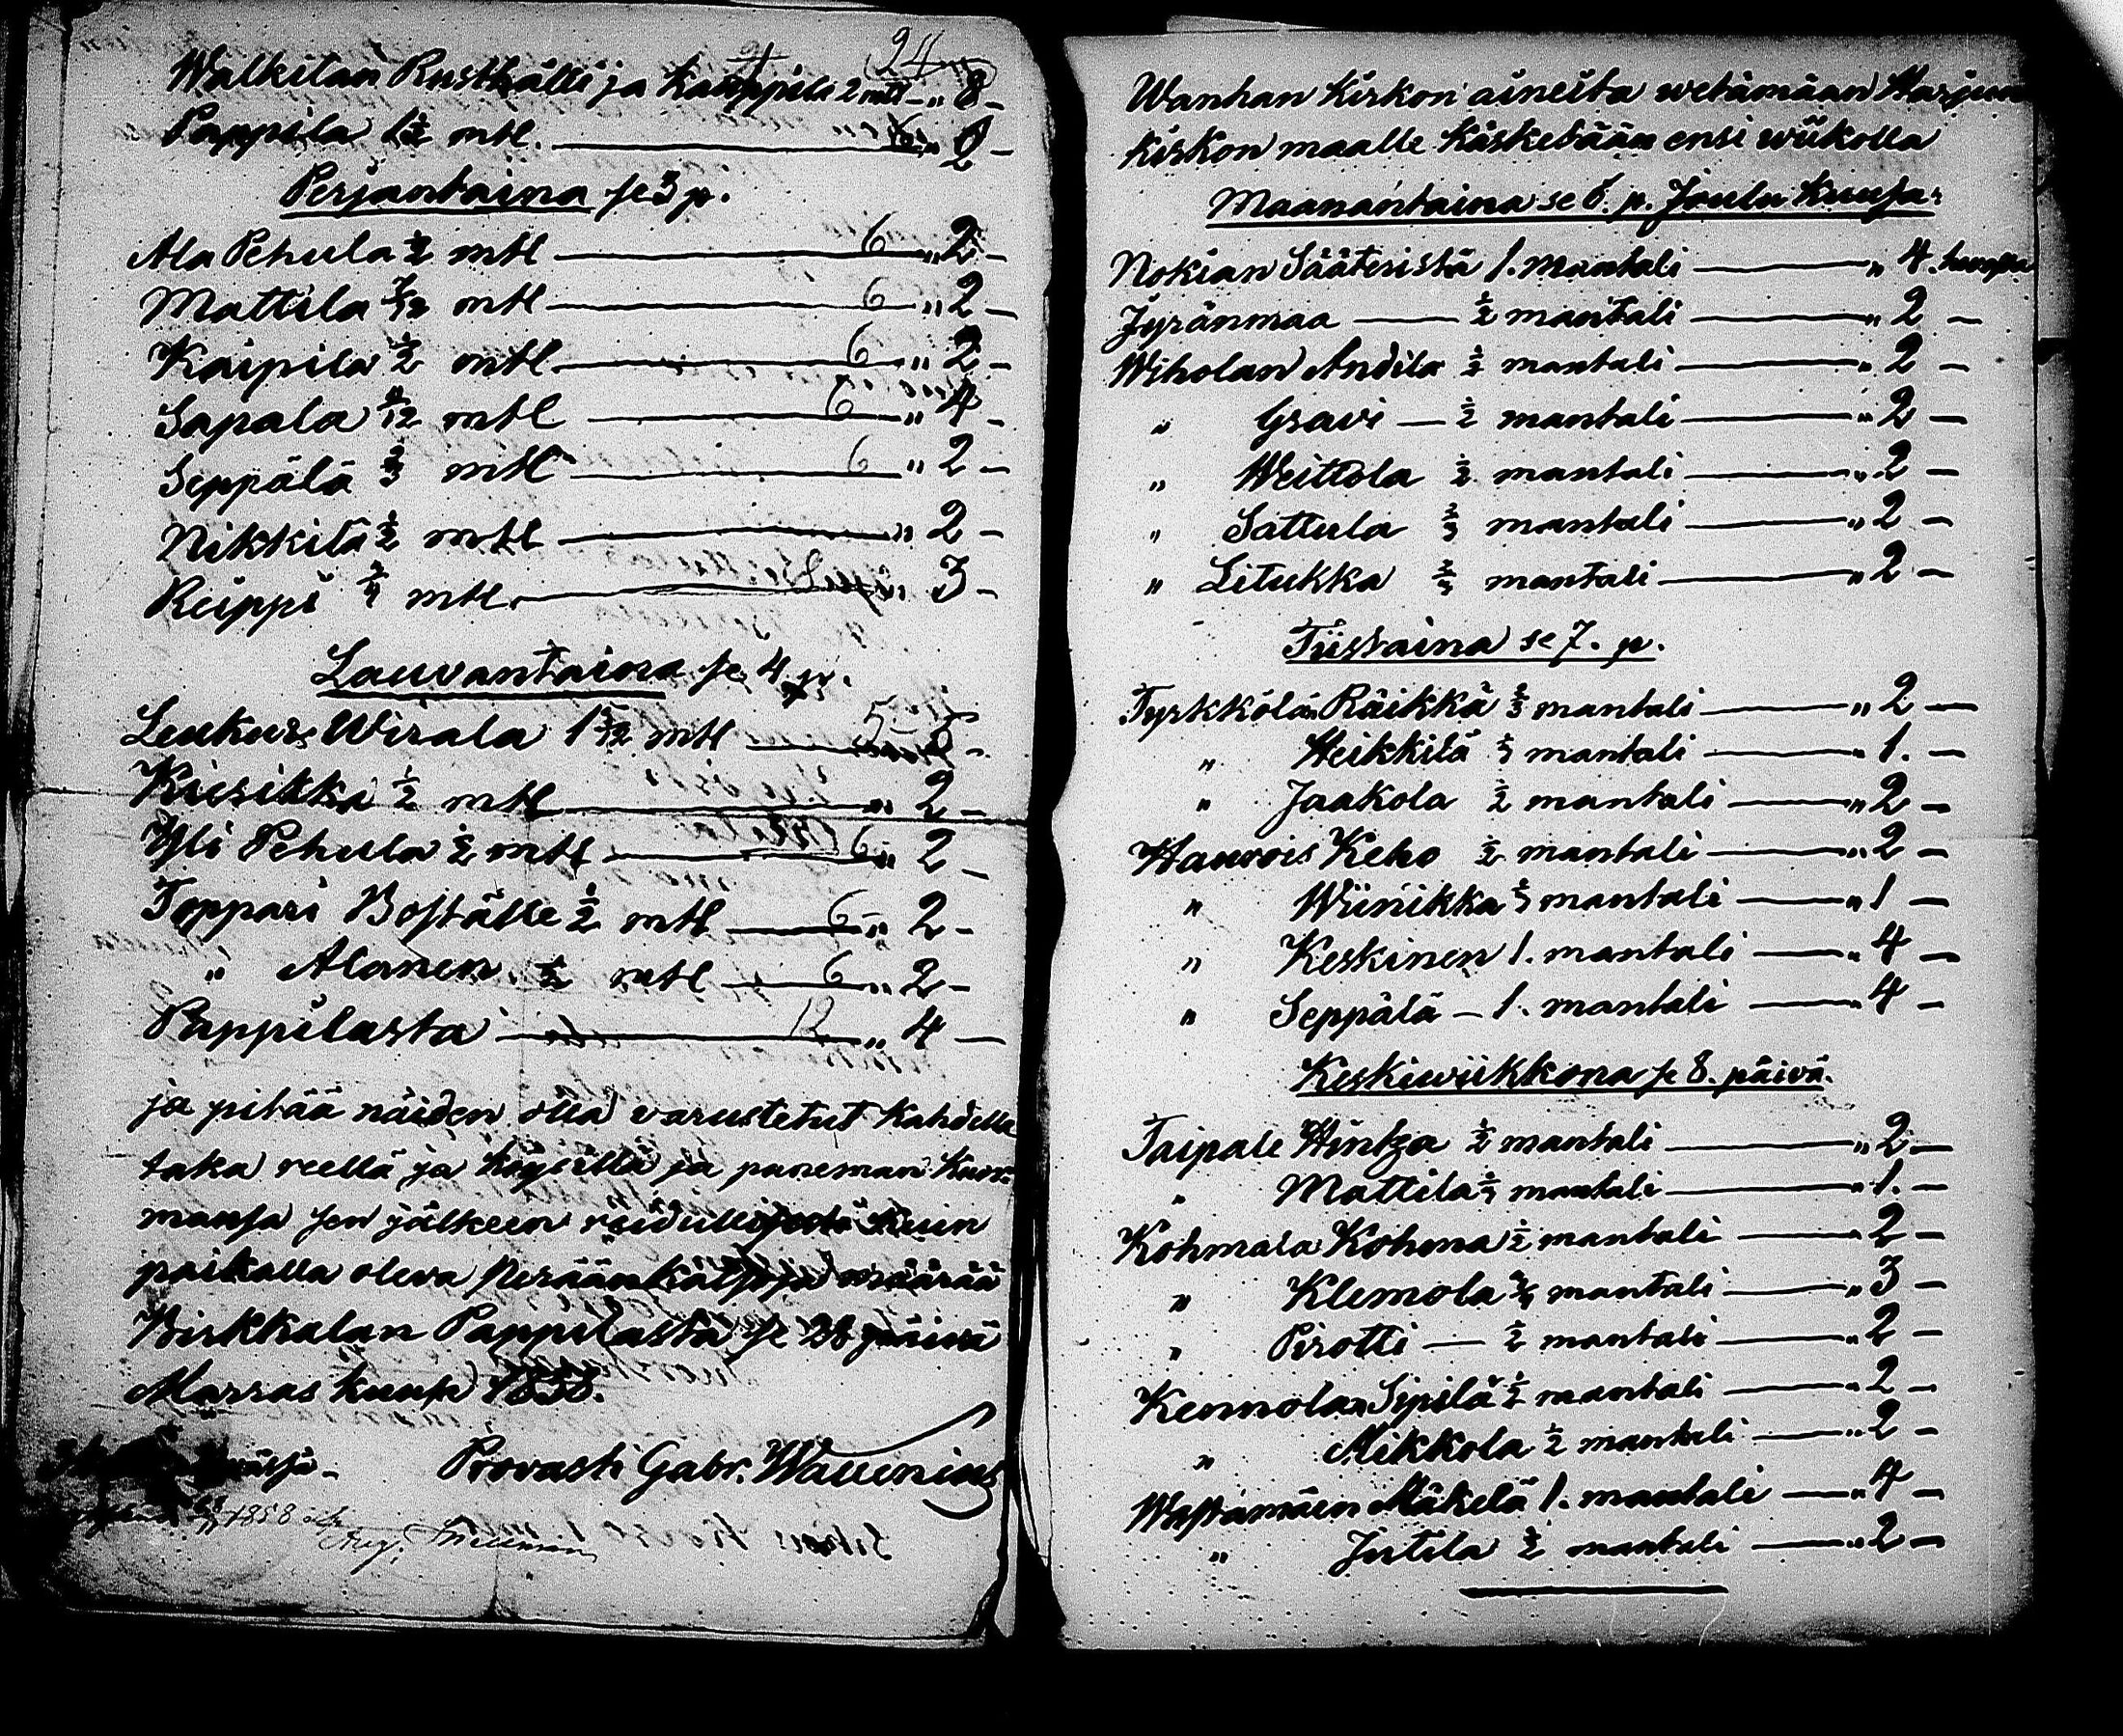 24
Walkilan Rusthålli ja Kauppila 2 mtl — „ 8 —
Pappila 1½ mtl. — 6 „
Perjantaina se 3 p.
Ala Pehula ½ mtl — 6 „ 2 —
Mattila 7/12 mtl — 6 „ 2 —
Kaipila ½ mtl — 6 „ 2 —
Sapala mtl — 6 „ 4 —
Seppälä ⅔ mtl — 6 „ 2 —
Nikkilä ½ mtl — „ 2 —
Reippi ¾ mtl. — „ 3 —
Lauvantaina se 4 p.
Leukurs Wirala mtl — 5
Kiisikka ½ mtl — „ 2 —
Yli Pehula ½ mtl — 6 „ 2 —
Toppari Boställe ½ mtl — 6 „ 2 —
„ Alanen ½ mtl — 6 „ 2 —
Pappilasta — 12 „ 4 —
ja pitää näiden olla varustetut Kahdella
taka reellä ja köysillä ja paneman Kuor-
mansa sen jälkeen Kuin
paikalla oleva Perään Kattoja määrää
Birkkalan Pappilasta se 28 päivä
Marras kuusa 1858.
Provasti Gabr. Wallenius
1858
Aug.
Wanhan Kirkon aineita wetämään Harjun
kirkon maalle Käsketään ensi wiikolla
Maanantaina se 6. p. Joulu Kuusa:
Nokian Sääteristä 1. mantali — „ 4.
Jyränmaa — ½ mantali — „ 2 —
Wiholan Andila ½ mantali — „ 2 —
„ Gravi — ½ mantali — „ 2 —
„ Weittola ½ mantali — „ 2 —
„ Sattula ⅔ mantali — „ 2 —
„ Litukka ⅔ mantali — „ 2 —
Tiistaina se 7. p.
Tyrkkölän Räikkä ⅔ mantali — „ 2 —
„ Heikkilä ⅓ mantali — „ 1. —
„ Jaakola ½ mantali — „ 2 —
Haurois Keho ½ mantali — „ 2 —
„ Wiinikka ⅓ mantali — „ 1 —
„ Keskinen 1. mantali — „ 4 —
„ Seppälä — 1. mantali — „ 4 —
Keskiwiikkona se 8. päivä.
Taipale Hintza ½ mantali — „ 2 —
„ Mattila ⅓ mantali — „ 1. —
Kohmala Kohma ½ mantali — „ 2 —
„ Klemola ¾ mantali — „ 3 —
„ Pirotti — ½ mantali — „ 2 —
Kennolan Sipilä ½ mantali — „ 2 —
„ Mikkola ½ mantali — „ 2 —
Wästämäen Mäkelä 1. mantali — „ 4 —
„ Jutila ½ mantali — „ 2 —